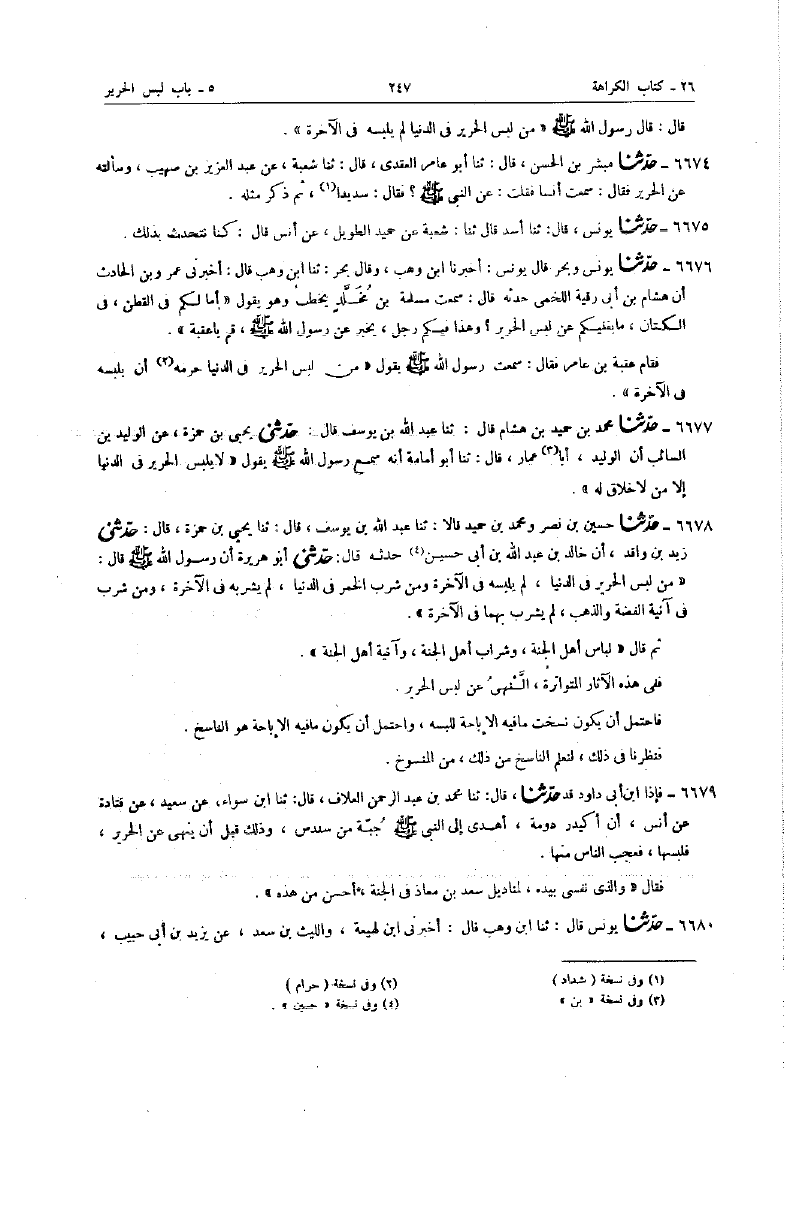 ٢٦ - كتاب الكراهة ٢٤٧ ٥ - باب لبس الحرير
قال : قال رسول الله ﷺ « من لبس الحرير فى الدنيا لم يلبسه فى الآخرة » .
٦٦٧٤ - حدثنا مبشر بن الحسن ، قال : ثنا أبو عامر العقدى ، قال : ثنا شعبة ، عن عبد العزيز بن صهيب ، وسألته
عن الحرير فقال : سمعت أنسا فقلت : عن النبي ﷺ ؟ فقال : سديدا(١) ، ثم ذكر مثله .
٦٦٧٥ - حدثنا يونس ، قال: ثنا أسد قال ثنا : شعبة عن حميد الطويل ، عن أنس قال : كنا نتحدث بذلك .
٦٦٧٦ - حدثنا يونس وبحر قال يونس : أخبرنا ابن وهب ، وقال بحر : ثنا ابن وهب قال : أخبرنى عمر وبن الحادث
أن هشام بن أبى رقية اللخمى حدثه قال : سمعت مسلمة بن مُخَلَّدٍ يخطب وهو يقول « أما لكم فى القطن ، فى
الكتان ، مايغنيكم عن لبس الحرير ؟ وهذا فيكم رجل ، يخبر عن رسول الله ﷺ ، قم ياعقبة » .
فقام عقبة بن عامر فقال : سمعت رسول الله ﷺ يقول « من لبس الحرير فى الدنيا حرمه(٢) أن يلبسه
فى الآخرة » .
٦٦٧٧ - حدثنا محمد بن حميد بن هشام قال : ثنا عبد الله بن يوسف قال : حدثنى يحيى بن حمزة ، عن الوليد بن
السائب أن الوليد ، أبا(٣) عمار ، قال : ثنا أبو أمامة أنه سمع رسول الله ﷺ يقول « لايلبس الحرير فى الدنيا
إلا من لاخلاق له » .
٦٦٧٨ - حدثنا حسين بن نصر ومحمد بن حميد قالا : ثنا عبد الله بن يوسف ، قال : ثنا يحيى بن حمزة ، قال : حدثنى
زيد بن واقد ، أن خالد بن عبد الله بن أبى حسين(٤) حدثه قال: حدثنى أبو هريرة أن رسول الله ﷺ قال :
« من لبس الحرير فى الدنيا ، لم يلبسه فى الآخرة ومن شرب الخمر فى الدنيا ، لم يشربه فى الآخرة ، ومن شرب
فى آنية الفضة والذهب ، لم يشرب بهما فى الآخرة » .
ثم قال « لباس أهل الجنة ، وشراب أهل الجنة ، وآنية أهل الجنة » .
ففى هذه الآثار المتواترة ، النَّهىُ عن لبس الحرير .
فاحتمل أن يكون نسخت مافيه الإباحة للبسه ، واحتمل أن يكون مافيه الإباحة هو الناسخ .
فنظرنا فى ذلك ، لنعلم الناسخ من ذلك ، من المنسوخ .
٦٦٧٩ - فإذا ابن أبى داود قد حدثنا ، قال: ثنا محمد بن عبد الرحمن العلاف ، قال: ثنا ابن سواء، عن سعيد ، عن قتادة
عن أنس ، أن أكيدر دومة ، أهدى إلى النبي ﷺ جُبة من سندس ، وذلك قبل أن ينهى عن الحرير ،
فلبسها ، فعجب الناس منها .
فقال « والذى نفسى بيده ، لمناديل سعد بن معاذ فى الجنة ، أحسن من هذه » .
٦٦٨٠ - حدثنا يونس قال : ثنا ابن وهب قال : أخبرنى ابن لهيعة ، والليث بن سعد ، عن يزيد بن أبى حبيب ،
(١) وفى نسخة ( شداد ) (٢) وفى نسخة ( حرام )
(٣) وفى نسخة « بن » (٤) وفى نسخة « حسين » .